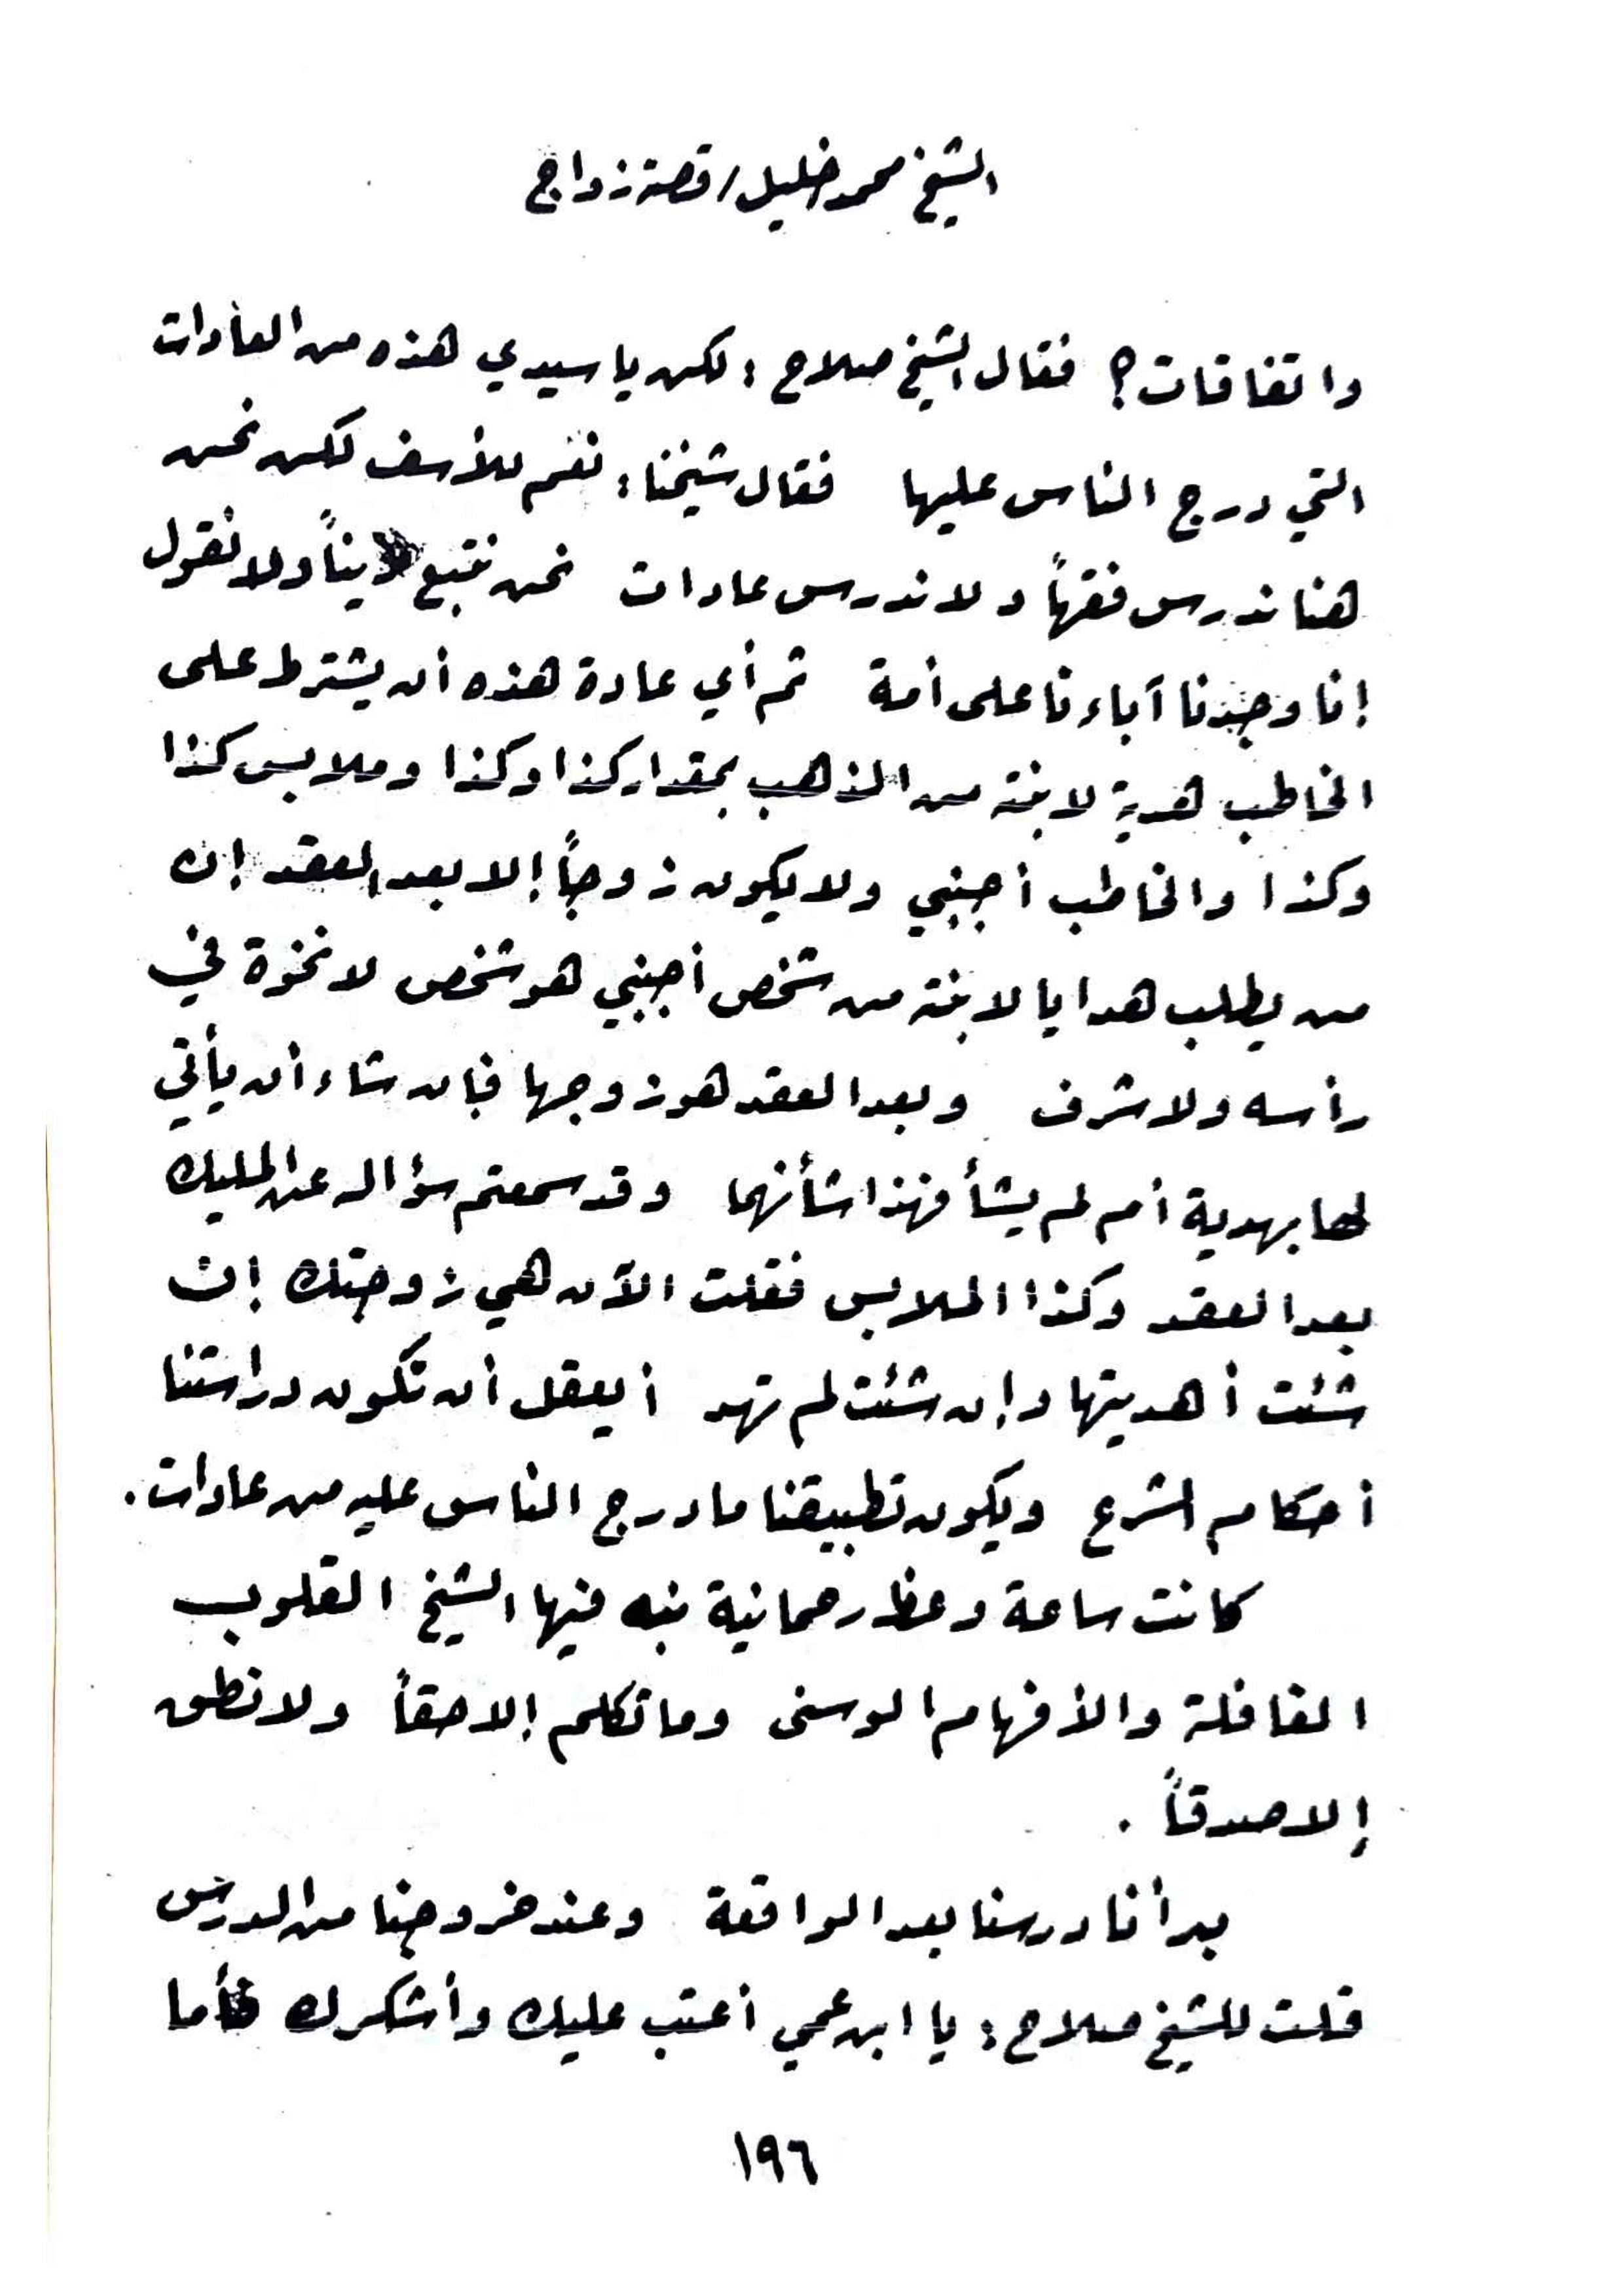 الشيخ محمد خليل / قصة زواج
واتفاقات؟ فقال الشيخ صلاح: لكن يا سيدي هذه من العادات
التي درج الناس عليها فقال شيخنا: نعم للأسف لكن نحن
هنا ندرس فقهاً ولا ندرس عادات نحن نتبع ديناً ولا نقول
إنا وجدنا آباءنا على أمة ثم أي عادة هذه أن يشترط على
الخاطب هدية لابنته من الذهب بمقدار كذا وكذا وملابس كذا
وكذا والخاطب أجنبي ولا يكون زوجاً إلا بعد العقد إن
من يطلب هدايا لابنته من شخص أجنبي هو شخص لا نخوة في
رأسه ولا شرف وبعد العقد هو زوجها فإن شاء أن يأتي
لها بهدية أم لم يشأ فهذا شأنهما وقد سمعتم سؤاله عن المليك
بعد العقد وكذا الملابس فقلت الآن هي زوجتك إن
شئت أهديتها وإن شئت لم تهد أيعقل أن تكون دراستنا
أحكام الشرع ويكون تطبيقنا ما درج الناس عليه من عادات.
كانت ساعة وعظ رحمانية نبه فيها الشيخ القلوب
الغافلة والأفهام الوسنى وما تكلم إلا حقاً ولا نطق
إلا صدقاً.
بدأنا درسنا بعد الواقعة وعند خروجنا من الدرس
قلت للشيخ صلاح: يا ابن عمي أعتب عليك وأشكرك فأما
١٩٦